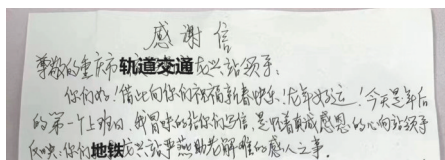 感谢信
尊敬的重庆市轨道交通龙兴站领导:
你们好!借此向你们祝福新春快乐!龙年好运!今天是年后
的第一个上班日,我冒昧的给你们写信,是怀着真诚感恩的心向站领导
反映:你们地铁龙兴站李燕助老解难的感人之事。